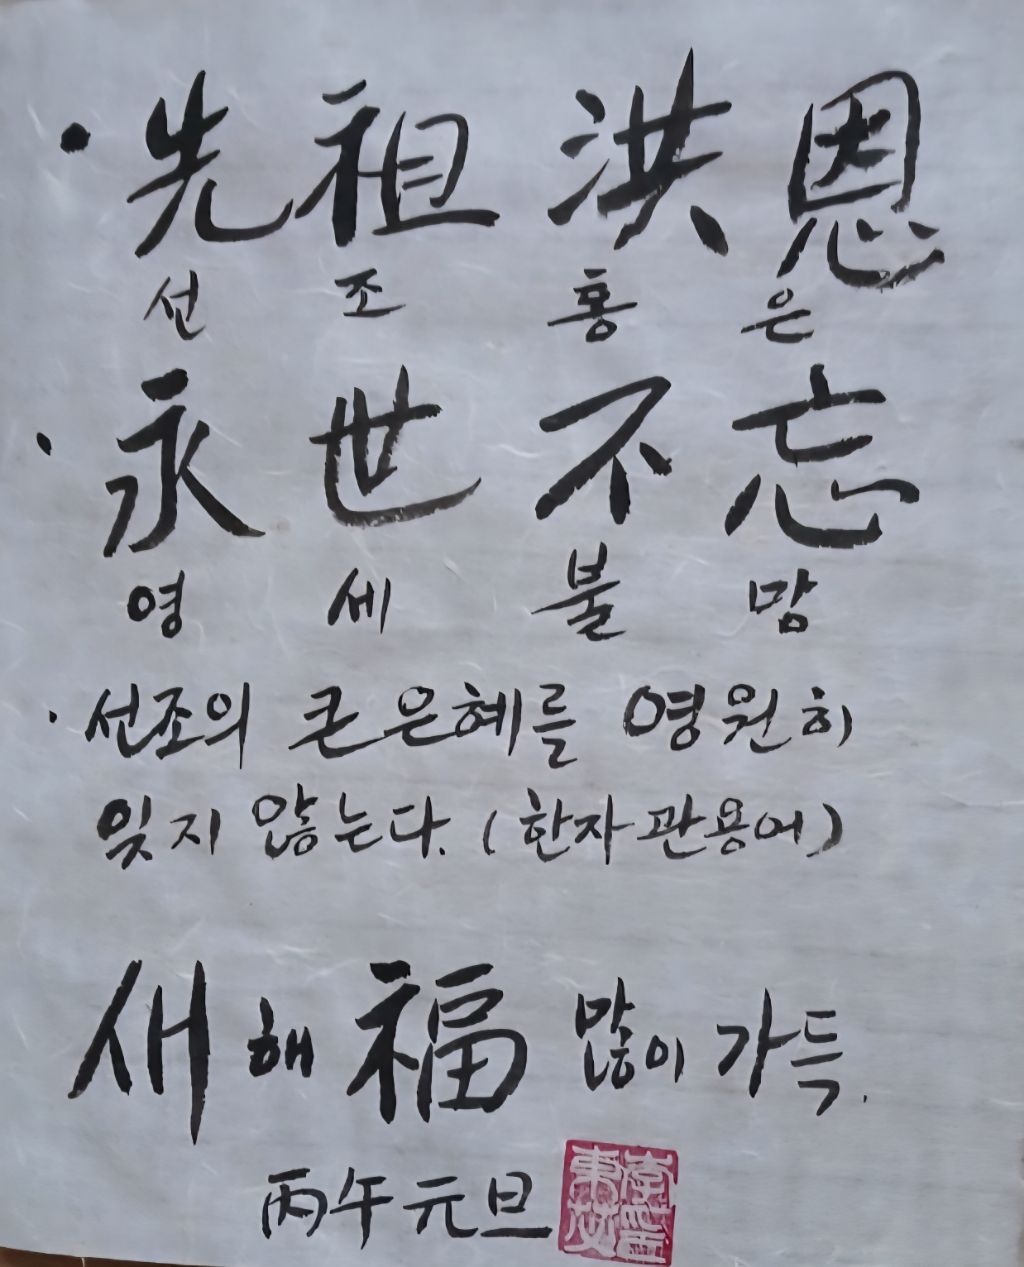 · 先祖洪恩
선 조 홍 은
· 永世不忘
영 세 불 망
· 선조의 큰 은혜를 영원히
잊지 않는다. (한자 관용어)
새해 福 많이 가득.
丙午 元旦